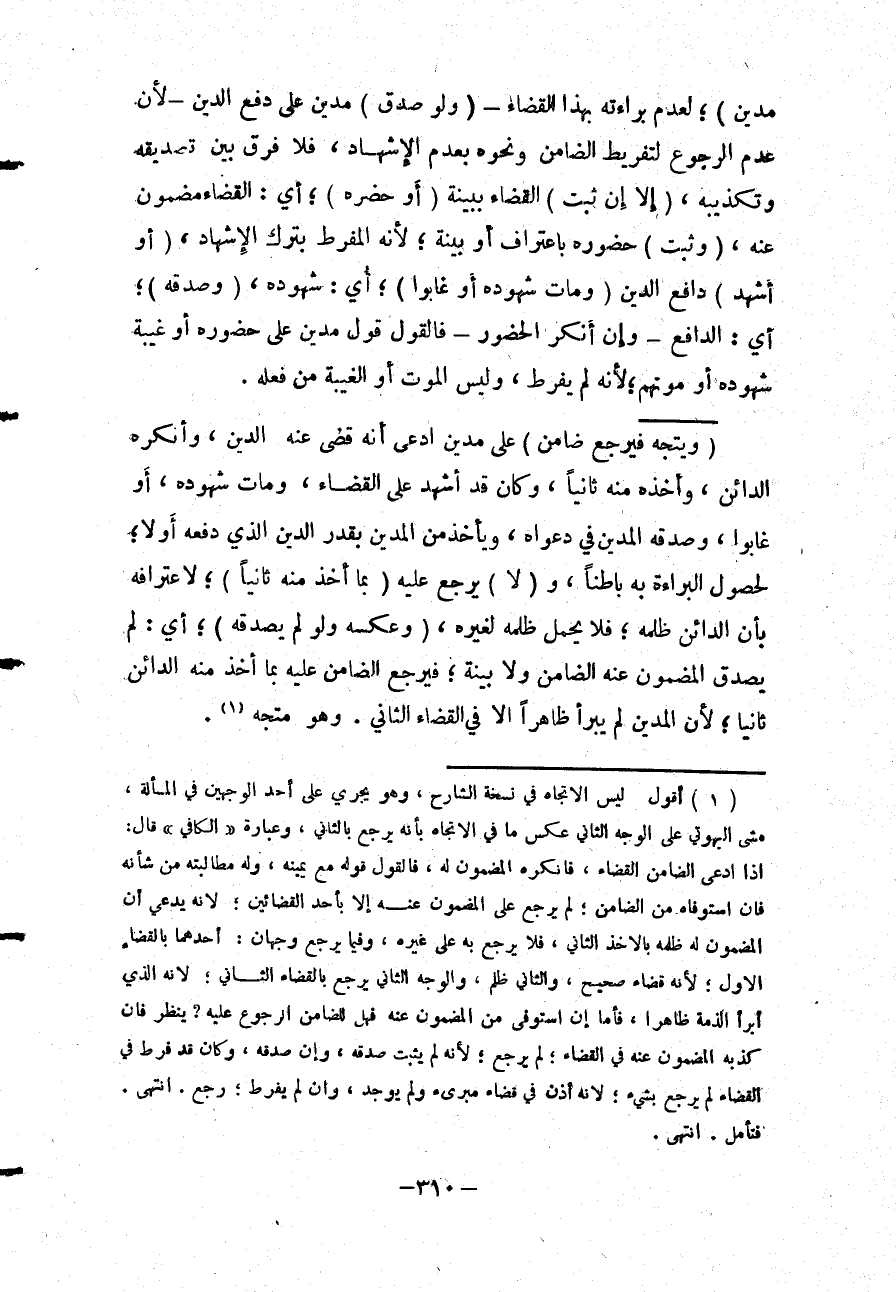 مدين ) ؛ لعدم براءته بهذا القضاء – ( ولو صدق ) مدين على دفع الدين – لأن
عدم الرجوع لتفريط الضامن ونحوه بعدم الإشهـاد ، فلا فرق بين تصديقه
وتكذيبه ، ( إلا إن ثبت ) القضاء ببينة ( أو حضره ) ؛ أي : القضاء مضمون
عنه ، ( وثبت ) حضوره باعتراف أو بينة ؛ لأنه المفرط بترك الإشهاد ، ( أو
أشهد ) دافع الدين ( ومات شهوده أو غابوا ) ؛ أي : شهوده ، ( وصدقه ) ؛
أي : الدافع – وإن أنكر الحضور – فالقول قول مدين على حضوره أو غيبة
شهوده أو موتهم ؛ لأنه لم يفرط ، وليس الموت أو الغيبة من فعله .
( ويتجه فيرجع ضامن ) على مدين ادعى أنه قضى عنه الدين ، وأنكره
الدائن ، وأخذه منه ثانياً ، وكان قد أشهد على القضـاء ، ومات شهوده ، أو
غابوا ، وصدقه المدين في دعواه ، ويأخذ من المدين بقدر الدين الذي دفعه أولا ؛
لحصول البراءة به باطناً ، و ( لا ) يرجع عليه ( بما أخذ منه ثانياً ) ؛ لاعترافه
بأن الدائن ظلمه ؛ فلا يحمل ظلمه لغيره ، ( وعكسه ولو لم يصدقه ) ؛ أي : لم
يصدق المضمون عنه الضامن ولا بينة ؛ فيرجع الضامن عليه بما أخذ منه الدائن
ثانيا ؛ لأن المدين لم يبرأ ظاهراً الا في القضاء الثاني . وهو متجه (١) .
( ١ ) أقول ليس الاتجاه في نسخة الشارح ، وهو يجري على أحد الوجهين في المسألة ،
مشى البهوتي على الوجه الثاني عكس ما في الاتجاه بأنه يرجع بالثاني ، وعبارة « الكافي » قال:
اذا ادعى الضامن القضاء ، فانكره المضمون له ، فالقول قوله مع يمينه ، وله مطالبته من شأنه
فان استوفاه من الضامن ؛ لم يرجع على المضمون عنـه إلا بأحد القضائين ؛ لانه يدعي أن
المضمون له ظلمه بالاخذ الثاني ، فلا يرجع به على غيره ، وفيا يرجع وجهان : أحدهما بالقضاء
الاول ؛ لأنه قضاء صحيح ، والثاني ظلم ، والوجه الثاني يرجع بالقضاء الثـاني ؛ لانه الذي
أبرأ الذمة ظاهرا ، فأما إن استوفى من المضمون عنه فهل للضامن الرجوع عليه ? ينظر فان
كذبه المضمون عنه في القضاء ؛ لم يرجع ؛ لأنه لم يثبت صدقه ، وإن صدقه ، وكان قد فرط في
القضاء لم يرجع بشيء ؛ لانه أذن في قضاء مبرىء ولم يوجد ، وان لم يفرط ؛ رجع . انتهى .
فتأمل . انتهى .
– ٣١٠ –